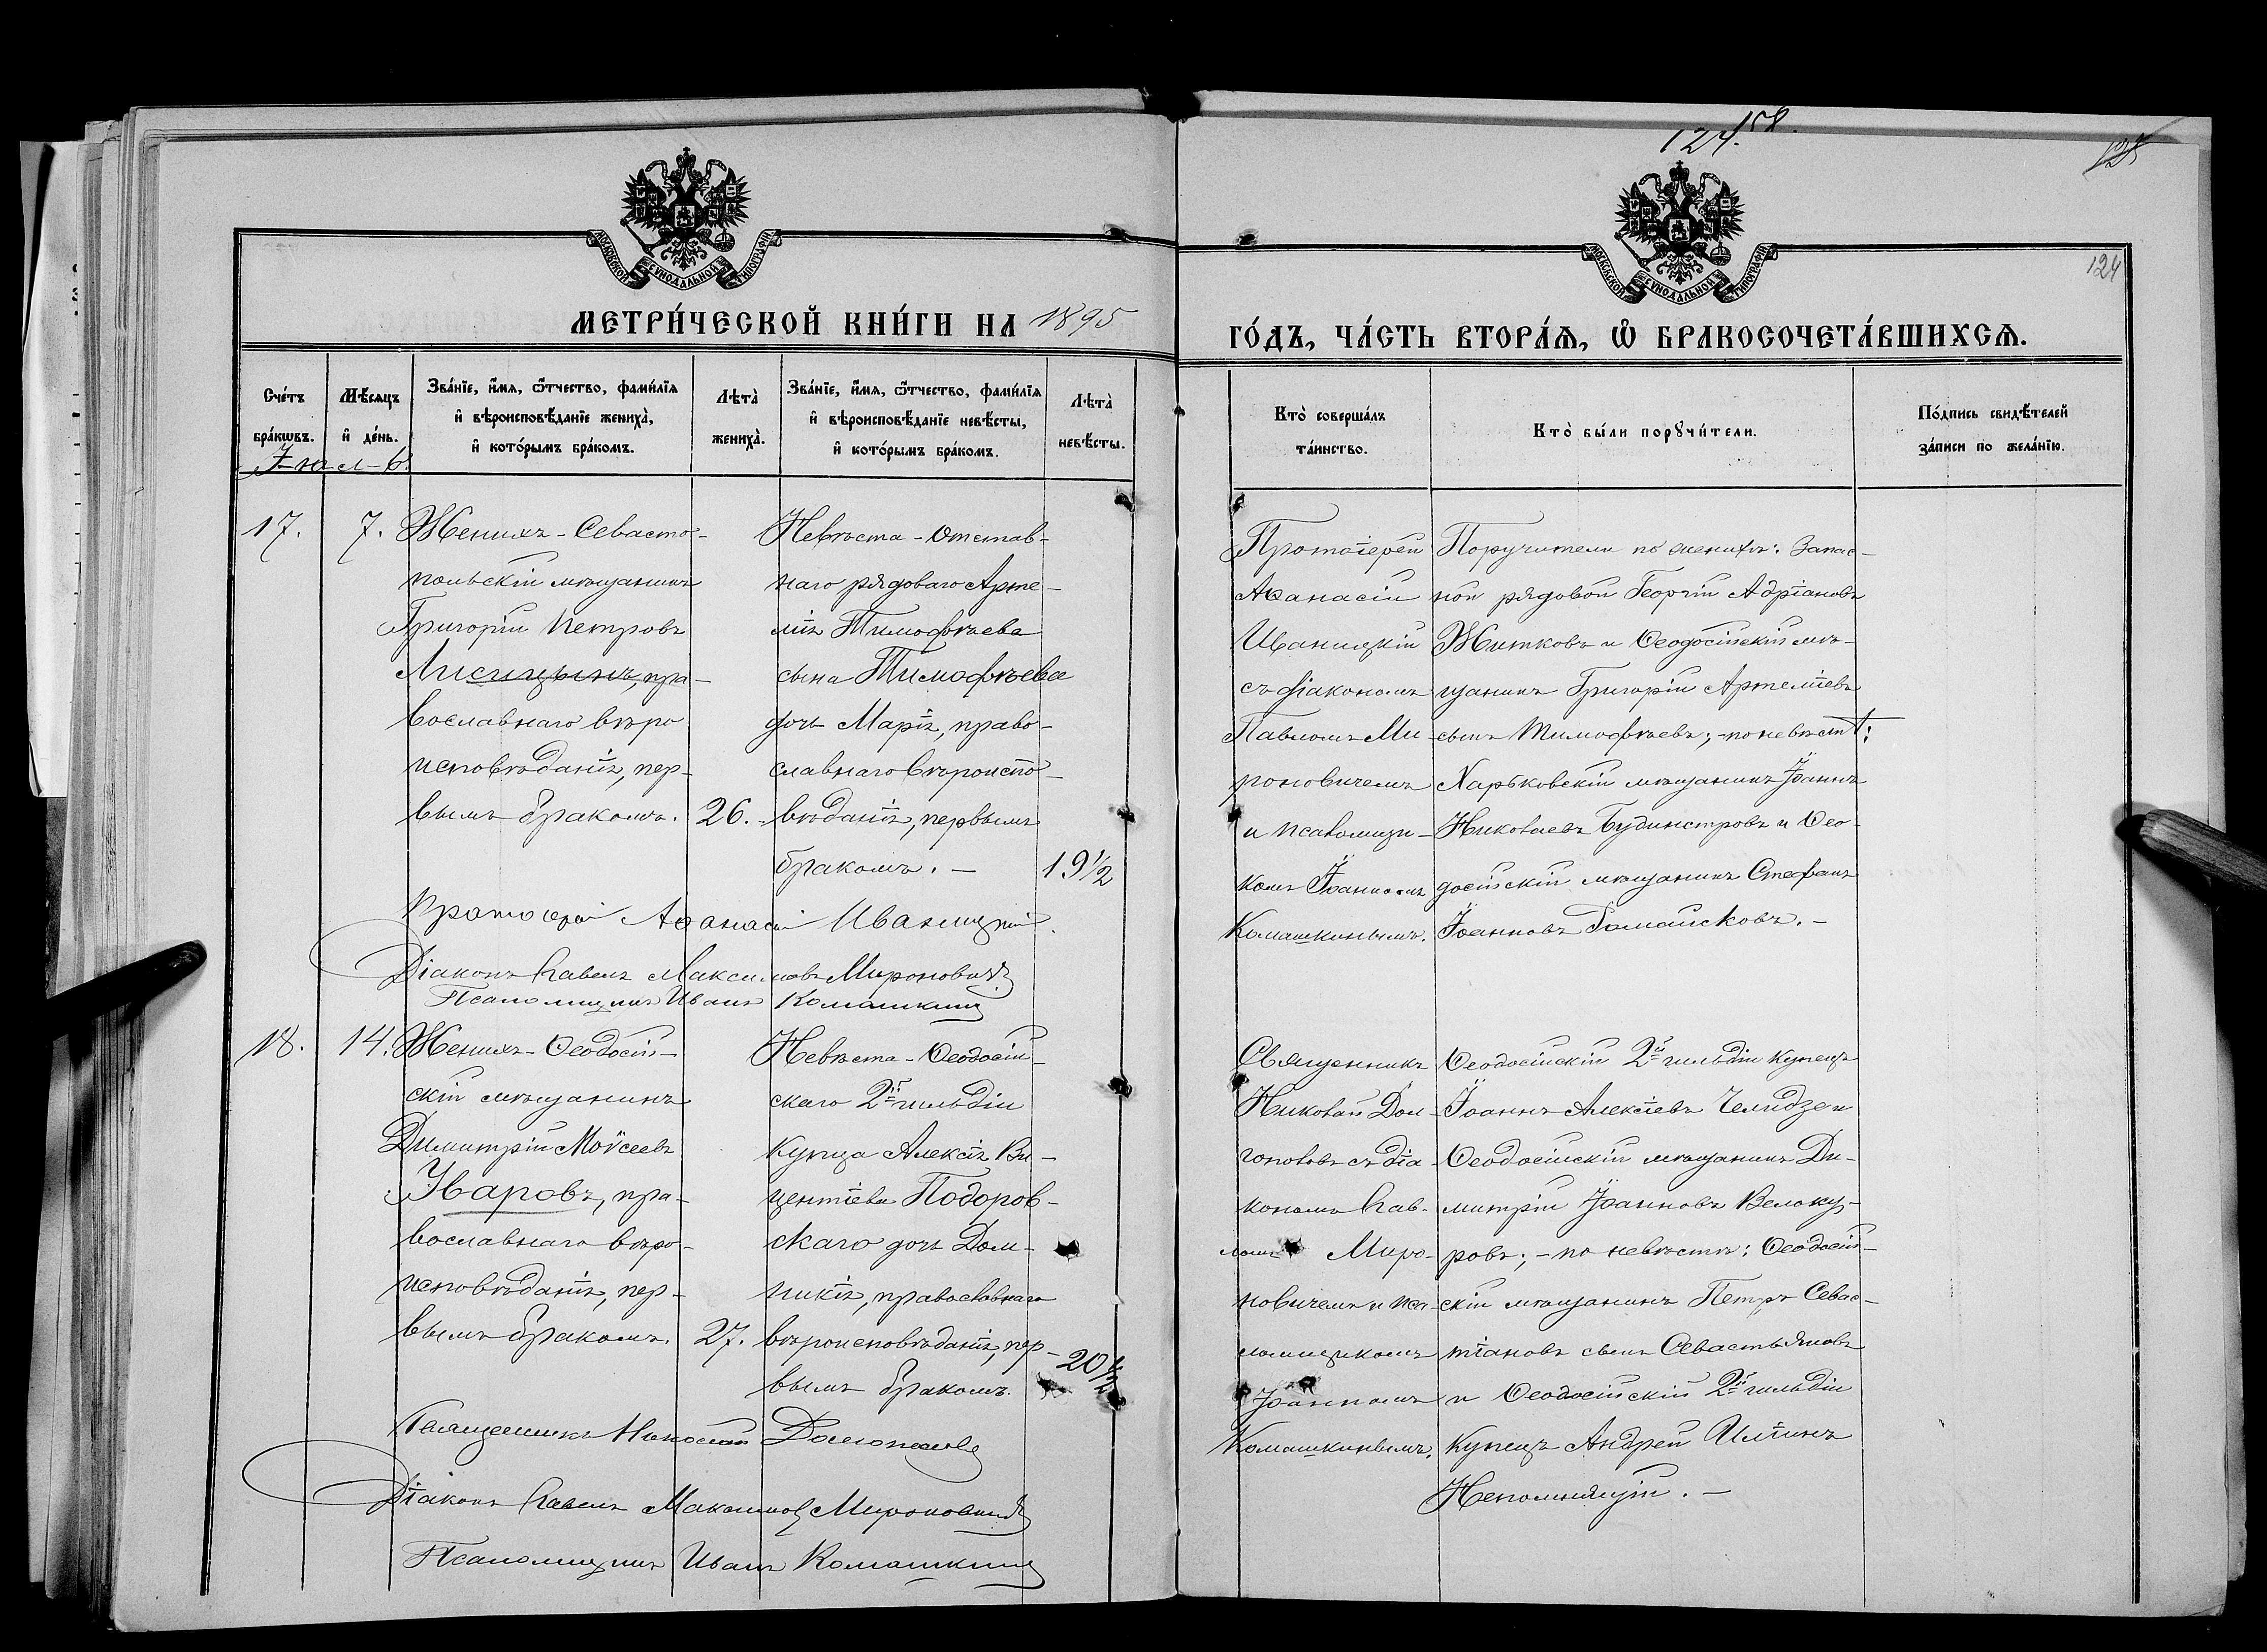 124. 158.
125
МОСКОВСКОЙ СѴНОДАЛЬНОЙ ТИПОГРАФІИ.
МОСКОВСКОЙ СѴНОДАЛЬНОЙ ТИПОГРАФІИ.
124
МЕТРИ́ЧЕСКОЙ КНИ́ГИ НА 1895
ГО́ДЪ, ЧА́СТЬ ВТОРА́Ѧ, Ѿ БРАКОСОЧЕТА́ВШИХСѦ.
Сче́тъ
бра́кѡвъ.
Мѣ́сяцъ
и҆ де́нь.
Зва́нїе, и҆́мя, ѻ҆́тчество, фами́лїя
и҆ вѣроисповѣ́данїе жениха̀,
и҆ кото́рымъ бра́комъ.
Лѣта̀
жениха̀.
Зва́нїе, и҆́мя, ѻ҆́тчество, фами́лїя
и҆ вѣроисповѣ́данїе невѣ́сты,
и҆ кото́рымъ бра́комъ.
Лѣта̀
невѣ́сты.
Кто̀ соверша́лъ
та́инство.
Кто̀ бы́ли порꙋчи́тели.
По́дпись свидѣ́телей
за́писи по жела́нїю.
17.
7.
Женихъ - Севасто-
польскій мѣщанинъ
Григорій Петровъ
Лисицынъ, пра-
вославнаго вѣро
исповѣданія, пер-
вымъ бракомъ.
26.
Невѣста - Отстав-
наго рядоваго Арте-
мія Тимофѣева
сына Тимофѣева
дочь Марія, право-
славнаго вѣроиспо-
вѣданія, первымъ
бракомъ. —
19½
Протоіерей
Аѳанасій
Иваницкій
съ діакономъ
Павломъ Ми-
роновичемъ
и псаломщи-
комъ Іоанномъ
Комашкинымъ.
Поручители по женихѣ: Запас-
ной рядовой Георгій Адріановъ
Житковъ и Ѳеодосійскій мѣ-
щанинъ Григорій Артеміевъ
сынъ Тимофѣевъ; - по невѣстѣ:
Харьковскій мѣщанинъ Іоаннъ
Николаевъ и Ѳео-
досійскій мѣщанинъ Стефанъ
Іоанновъ. —
Протоіерей Аѳанасій Иваницкій.
Діаконъ Павелъ Максимовъ Мироновичъ
Псаломщикъ Иванъ Комашкинъ
18.
14.
Женихъ - Ѳеодосій-
скій мѣщанинъ
Димитрій Моѵсеевъ
Уваровъ, пра-
вославнаго вѣро-
исповѣданія, пер-
вымъ бракомъ.
27.
Невѣста - Ѳеодосій-
скаго 2й гильдіи
купца Алексія Ви-
центіева Подоров-
скаго дочь Дом-
никія, православнаго
вѣроисповѣданія, пер-
вымъ бракомъ.
20½
Священникъ
Николай Дол-
гополовъ съ діа-
кономъ Пав-
ломъ Миро-
новичемъ и пса-
ломщикомъ
Іоанномъ
Комашкинымъ.
Ѳеодосійскій 2й гильдіи купецъ
Іоаннъ Алексіевъ Челидзе и
Ѳеодосійскій мѣщанинъ Ди-
митрій Іоанновъ Белоку-
ровъ; - по невѣстѣ: Ѳеодосій-
скій мѣщанинъ Петръ Севас-
тіановъ сынъ Севастьяновъ
и Ѳеодосійскій 2й гильдіи
купецъ Андрей Иліинъ
Непомнящій. —
Священникъ Николай Долгополовъ
Діаконъ Павелъ Максимовъ Мироновичъ
Псаломщикъ Иванъ Комашкинъ